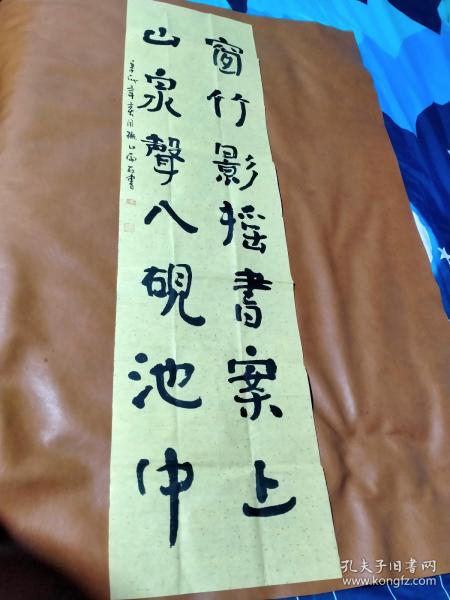 窗竹影摇書案上
山泉聲入硯池中
孔夫子旧书网
www.kongfz.com